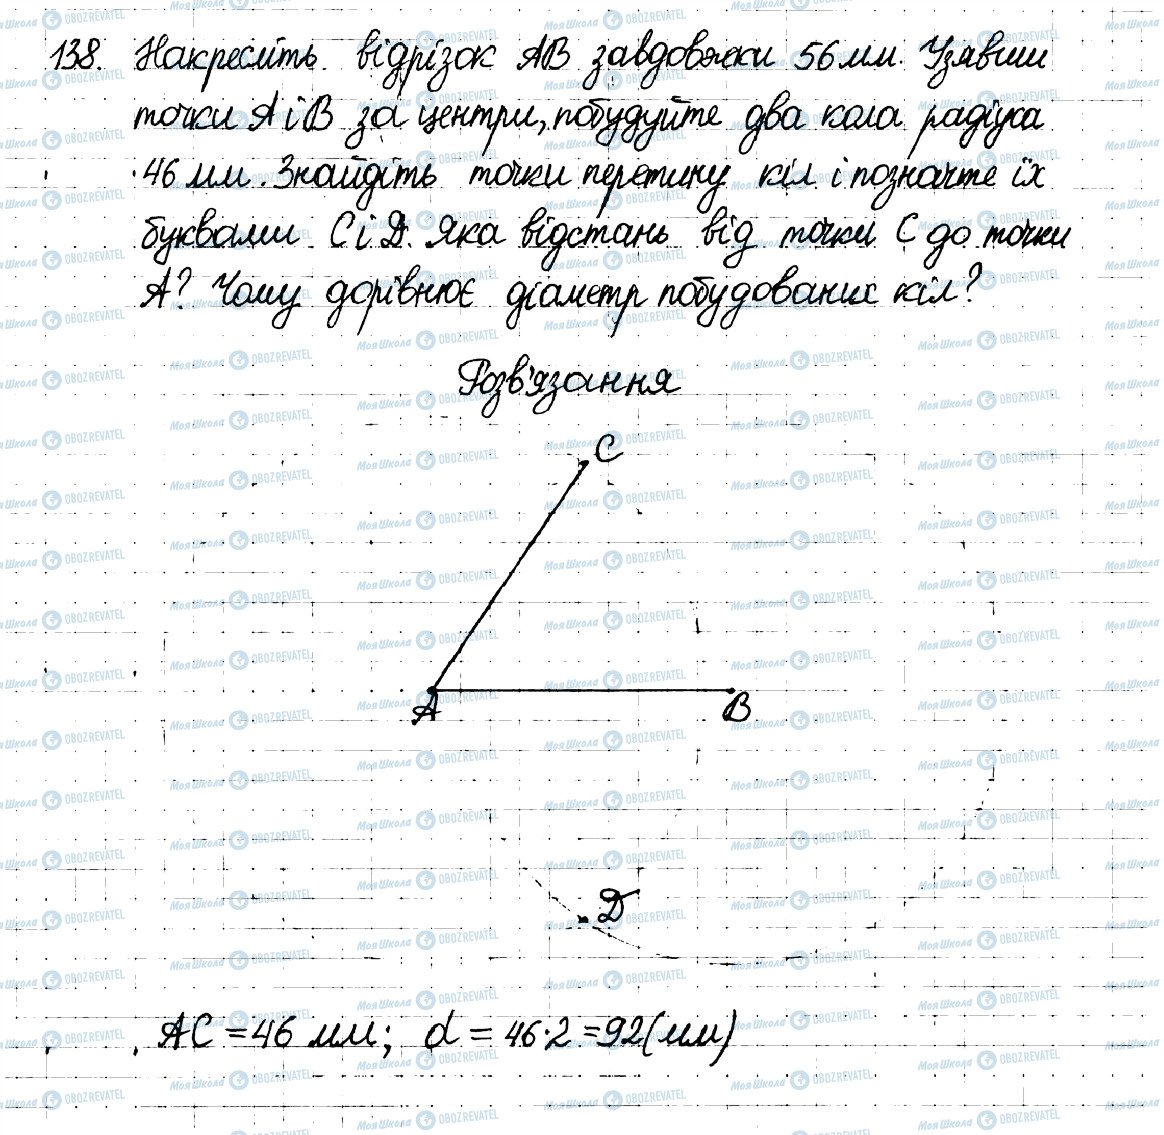 138. Накресліть відрізок АВ завдовжки 56 мм. Узявши
точки А і В за центри, побудуйте два кола радіуса
46 мм. Знайдіть точки перетину кіл і позначте їх
буквами С і D. Яка відстань від точки С до точки
А? Чому дорівнює діаметр побудованих кіл?
Розв'язання
С
А
В
D
АС = 46 мм; d = 46·2 = 92 (мм)
МояШкола OBOZREVATEL